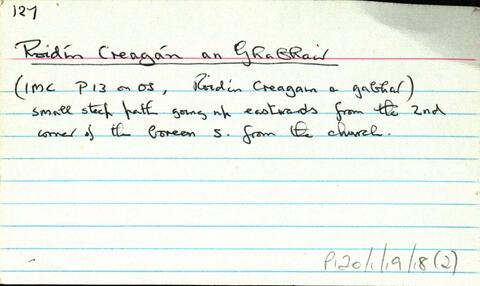 127
Róidín Creagán an Ghabhair
(IMC P13 on OS, Róidín Creagain a gabhar)
small steep path going up eastwards from the 2nd
corner of the boreen S. from the church.
P120/1/19/18(2)